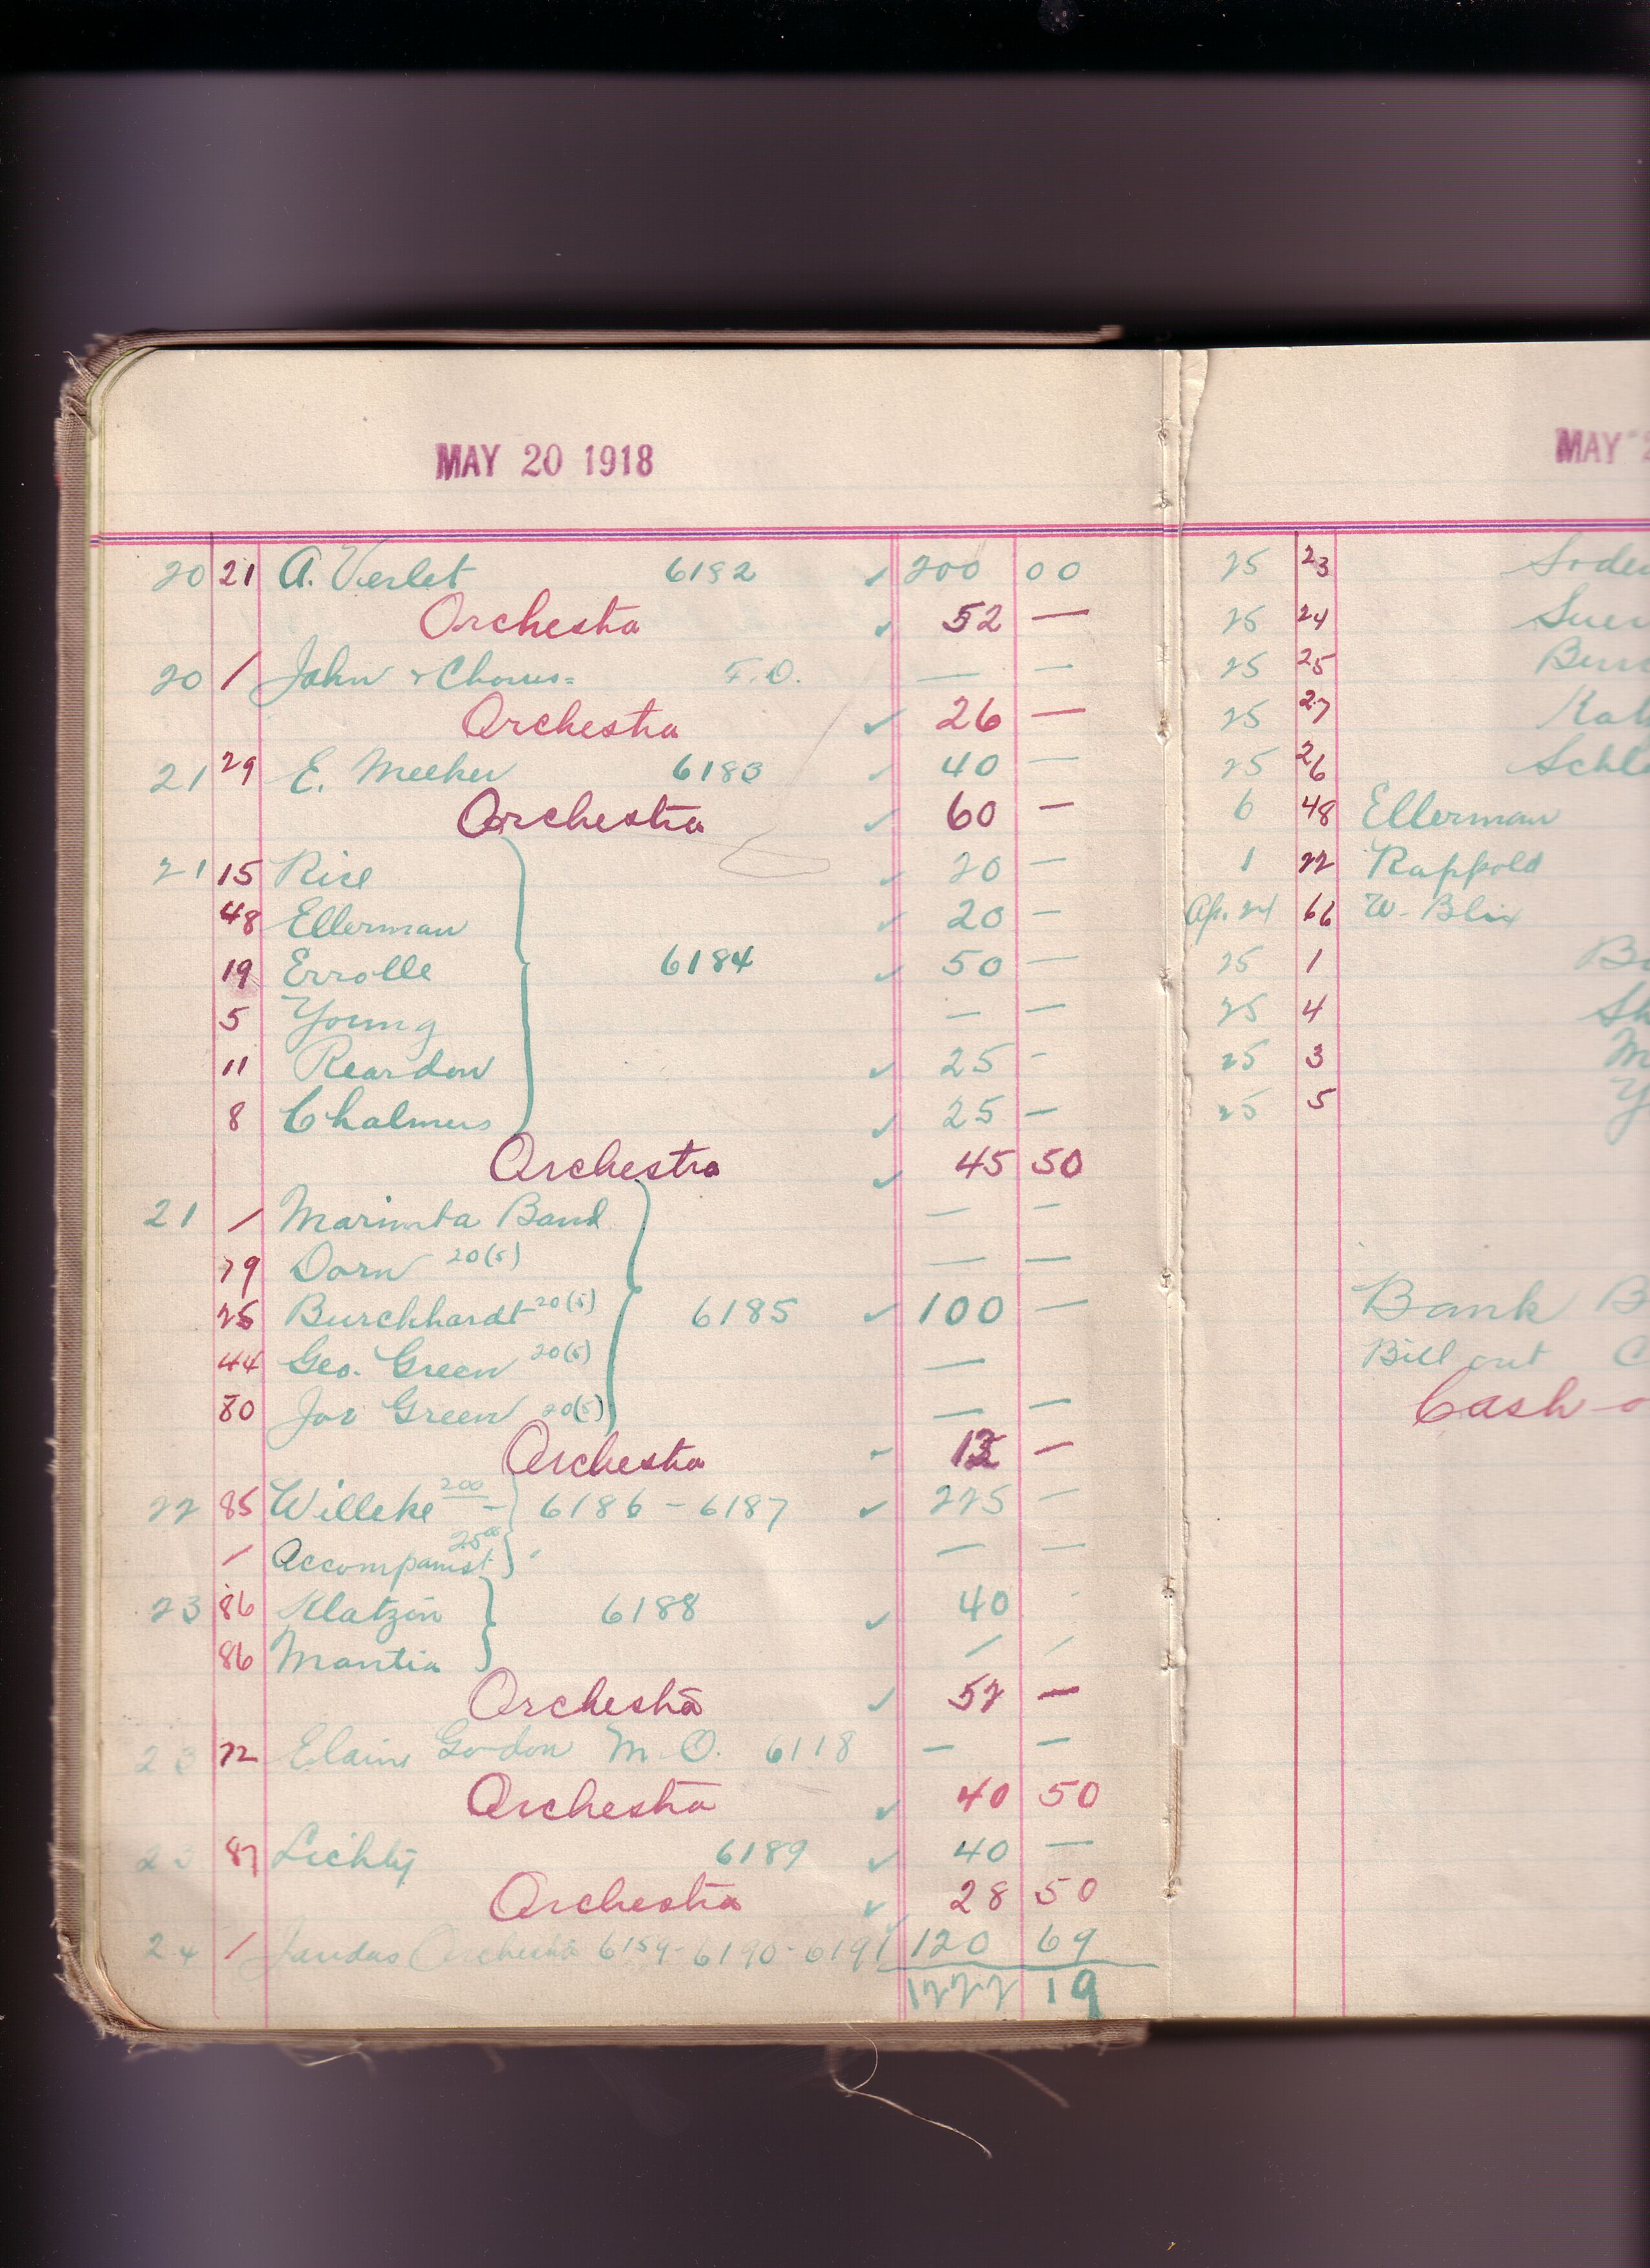 MAY 20 1918
20 21 A. Verlet 6182 ✓ 200 00
Orchestra ✓ 52 —
20 / John & Chorus = F.O. — —
Orchestra ✓ 26 —
21 29 E. Meeker 6183 ✓ 40 —
Orchestra ✓ 60 —
21 15 Rice ✓ 20 —
48 Ellerman ✓ 20 —
19 Errolle 6184 ✓ 50 —
5 Young — —
11 Reardon ✓ 25 -
8 Chalmers ✓ 25 —
Orchestra ✓ 45 50
21 / Marimba Band — —
79 Dorn 20(5) — —
25 Burckhardt 20(5) 6185 ✓ 100 —
44 Geo. Green 20(5) —
80 Joe Green 20(5) — —
Orchestra - 13 —
22 85 Willeke 200 — 6186 - 6187 ✓ 225 —
/ Accompanist 25 00 — —
23 86 Klatzin 6188 ✓ 40
86 Mantia / /
Orchestra ✓ 52 —
23 72 Elaine Gordon M.O. 6118 — —
Orchestra ✓ 40 50
23 87 Lichty 6189 ✓ 40 —
Orchestra ✓ 28 50
24 / Jaudas Orchestra 6159 - 6190 - 6191 120 69
1222 19
MAY 2
25 23
25 24
25 25
25 27
25 26
6 48 Ellerman
1 22 Rappold
Ap. 24 66 W. Blix
25 1
25 4
25 3
25 5
Bank B
Bill out C
Cash